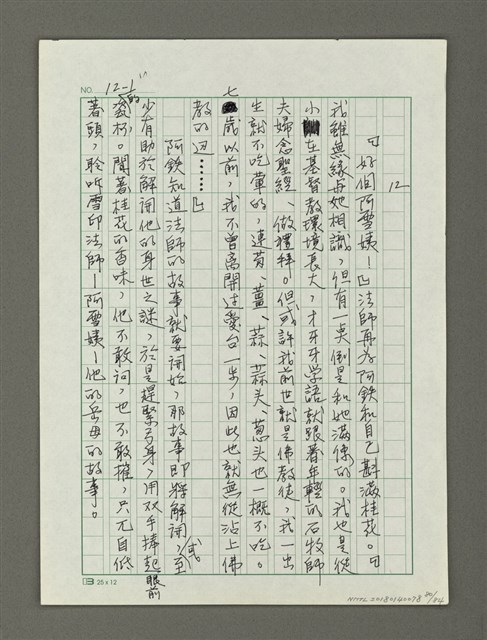 NO. 12-1
12
「好個阿雪姨！」法師再為阿鉄和自己斟滿桂花。「
我雖無緣與她相識，但有一奌倒是和她滿像的。我也是從
小在基督教環境長大，才牙牙学語就跟著年輕的石牧師
夫婦念聖經、做禮拜。但或許我前世就是佛教徒，我一出
生就不吃葷的，連蒜、薑、蒜、蒜头、葱头也一概不吃。
七歲以前，我不曾离開过愛台一步，因此也就無從沾上佛
教的边……」
阿鉄知道法師的故事就要開始，那故事即將解開，至
少有助於解開他的身世之謎，於是趕緊弓身，用双手捧起眼前
的瓷杯。聞著桂花的香味，他不敢问，也不敢搉，只兀自低
著頭，聆听雪印法師－阿雪姨－他的岳母的故事。
(或)
25 x 12
NMTL 20180140078 80/84